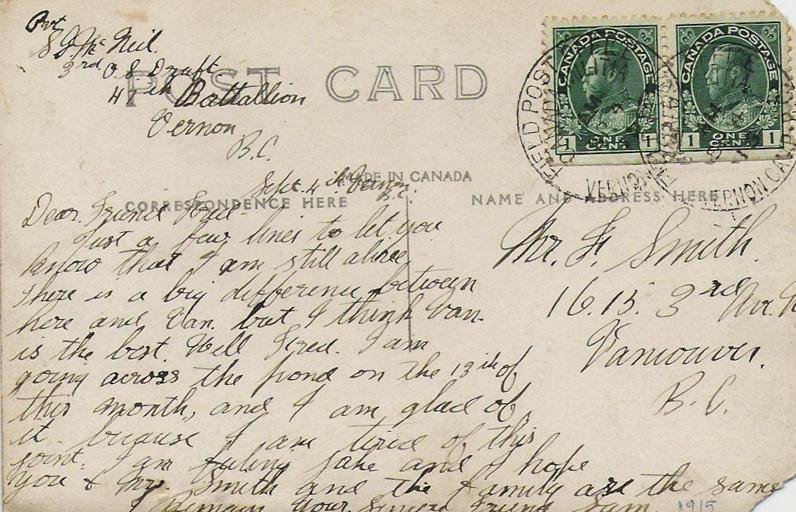 Pvt
S. J. McNeil
3rd O.S. Draft
47th Battallion
Vernon
B.C.
POST CARD
CANADA POSTAGE
1 ONE CENT 1
CANADA POSTAGE
1 ONE CENT 1
FIELD POST
VERNON
VERNON CAMP
MADE IN CANADA
CORRESPONDENCE HERE
NAME AND ADDRESS HERE
Sept. 4th Vernon
B.C.
Dear Friend Fred-
Just a few lines to let you
know that I am still alive,
There is a big difference between
here and Van. but I think Van.
is the best. Well Fred. I am
going across the pond on the 13th of
this month, and I am glad of
it because I am tired of this
joint. I am feeling jake and I hope
you & Mrs. Smith and the family are the same
I Remain Your Sincere Friend Sam.
1915
Mr. F. Smith.
1615. 3rd Av.
Vancouver.
B.C.